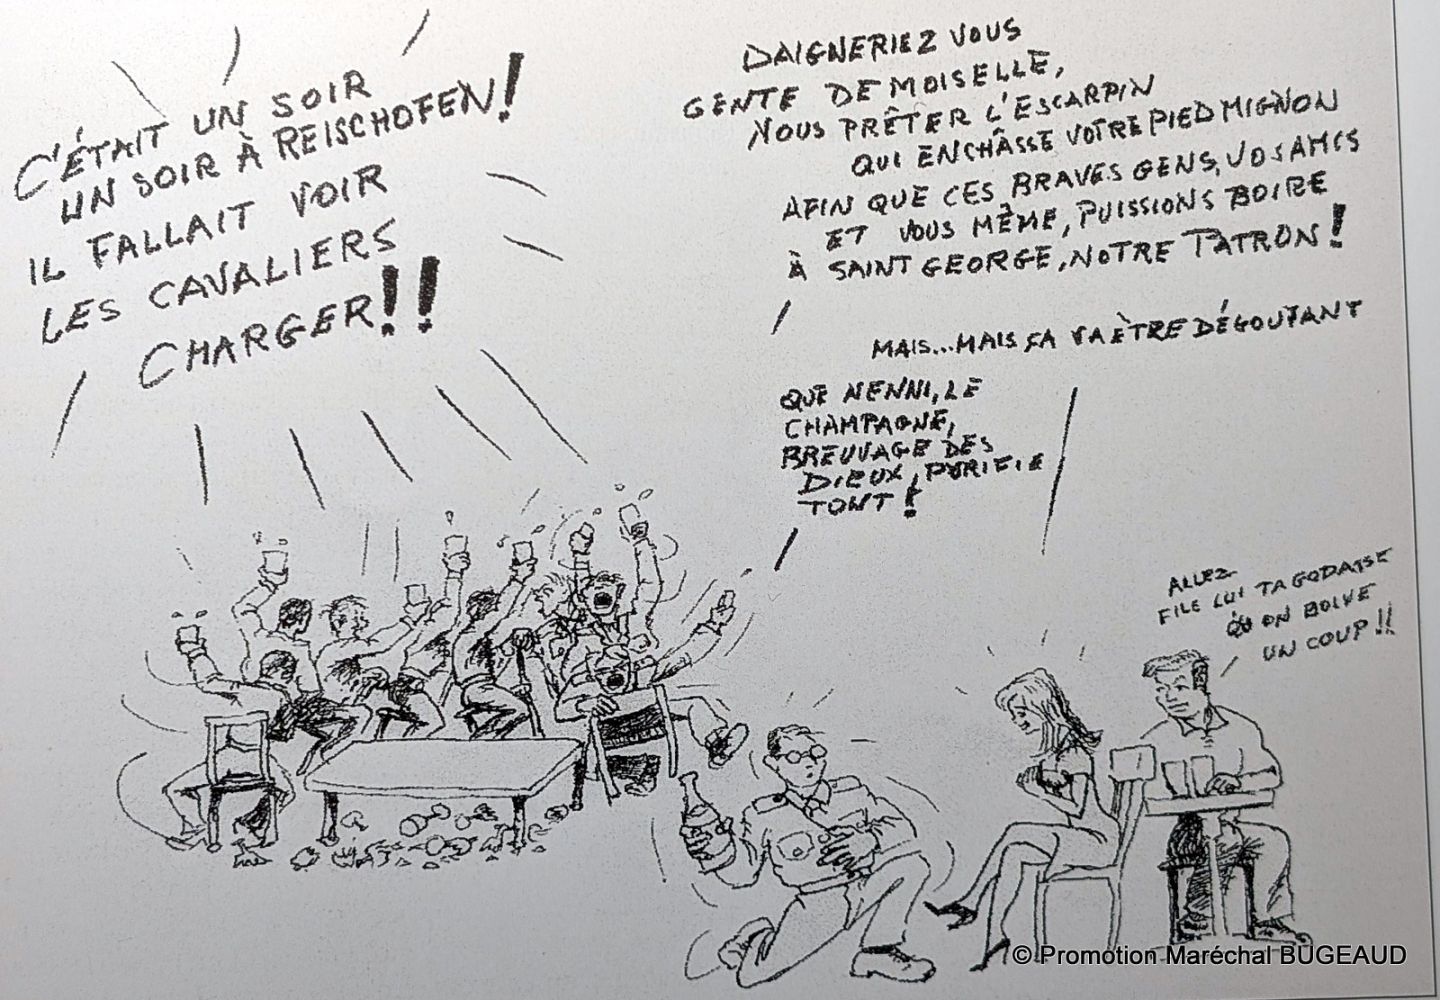 C'ÉTAIT UN SOIR
UN SOIR À REISCHOFEN!
IL FALLAIT VOIR
LES CAVALIERS
CHARGER!!
DAIGNERIEZ VOUS
GENTE DEMOISELLE,
NOUS PRÊTER L'ESCARPIN
QUI ENCHÂSSE VOTRE PIED MIGNON
AFIN QUE CES BRAVES GENS, VOS AMIS
ET VOUS MÊME, PUISSIONS BOIRE
À SAINT GEORGE, NOTRE PATRON!
MAIS...MAIS ÇA VA ÊTRE DÉGOUTANT
QUE NENNI, LE
CHAMPAGNE,
BREUVAGE DES
DIEUX, PURIFIE
TOUT!
ALLEZ
FILE LUI TA GODASSE
QU'ON BOIVE
UN COUP!!
© Promotion Maréchal BUGEAUD